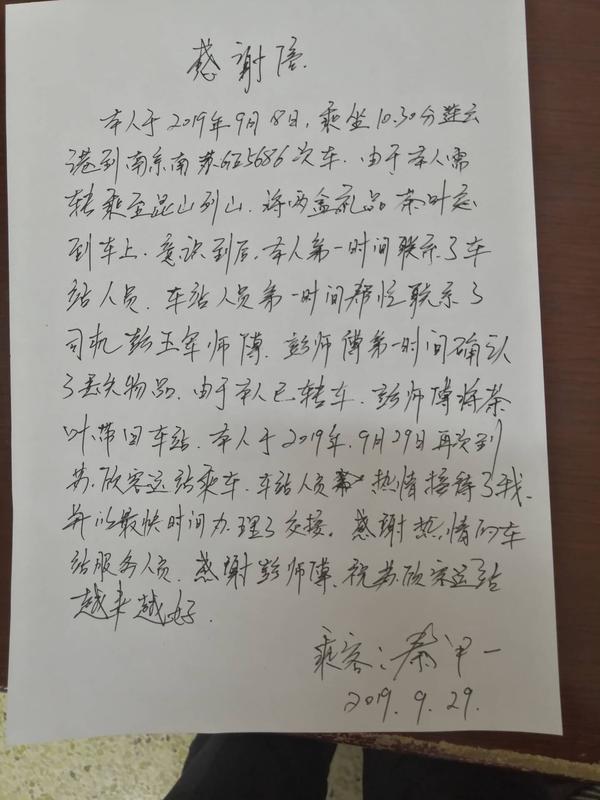 感谢信
本人于2019年9月8日,乘坐10.30分连云
港到南京南苏G25686次车.由于本人需
转乘至昆山到山.将两盒礼品茶叶忘
到车上.意识到后,本人第一时间联系了车
站人员.车站人员第一时间帮忙联系了
司机彭玉军师傅.彭师傅第一时间确认
了丢失物品.由于本人已转车.彭师傅将茶
叶带回车站.本人于2019年.9月29日再次到
苏欣客运站乘车.车站人员热情接待了我.
并以最快时间办理了交接。感谢热情的车
站服务人员.感谢彭师傅.祝苏欣客运站
越来越好.
乘客:秦甲一
2019.9.29.